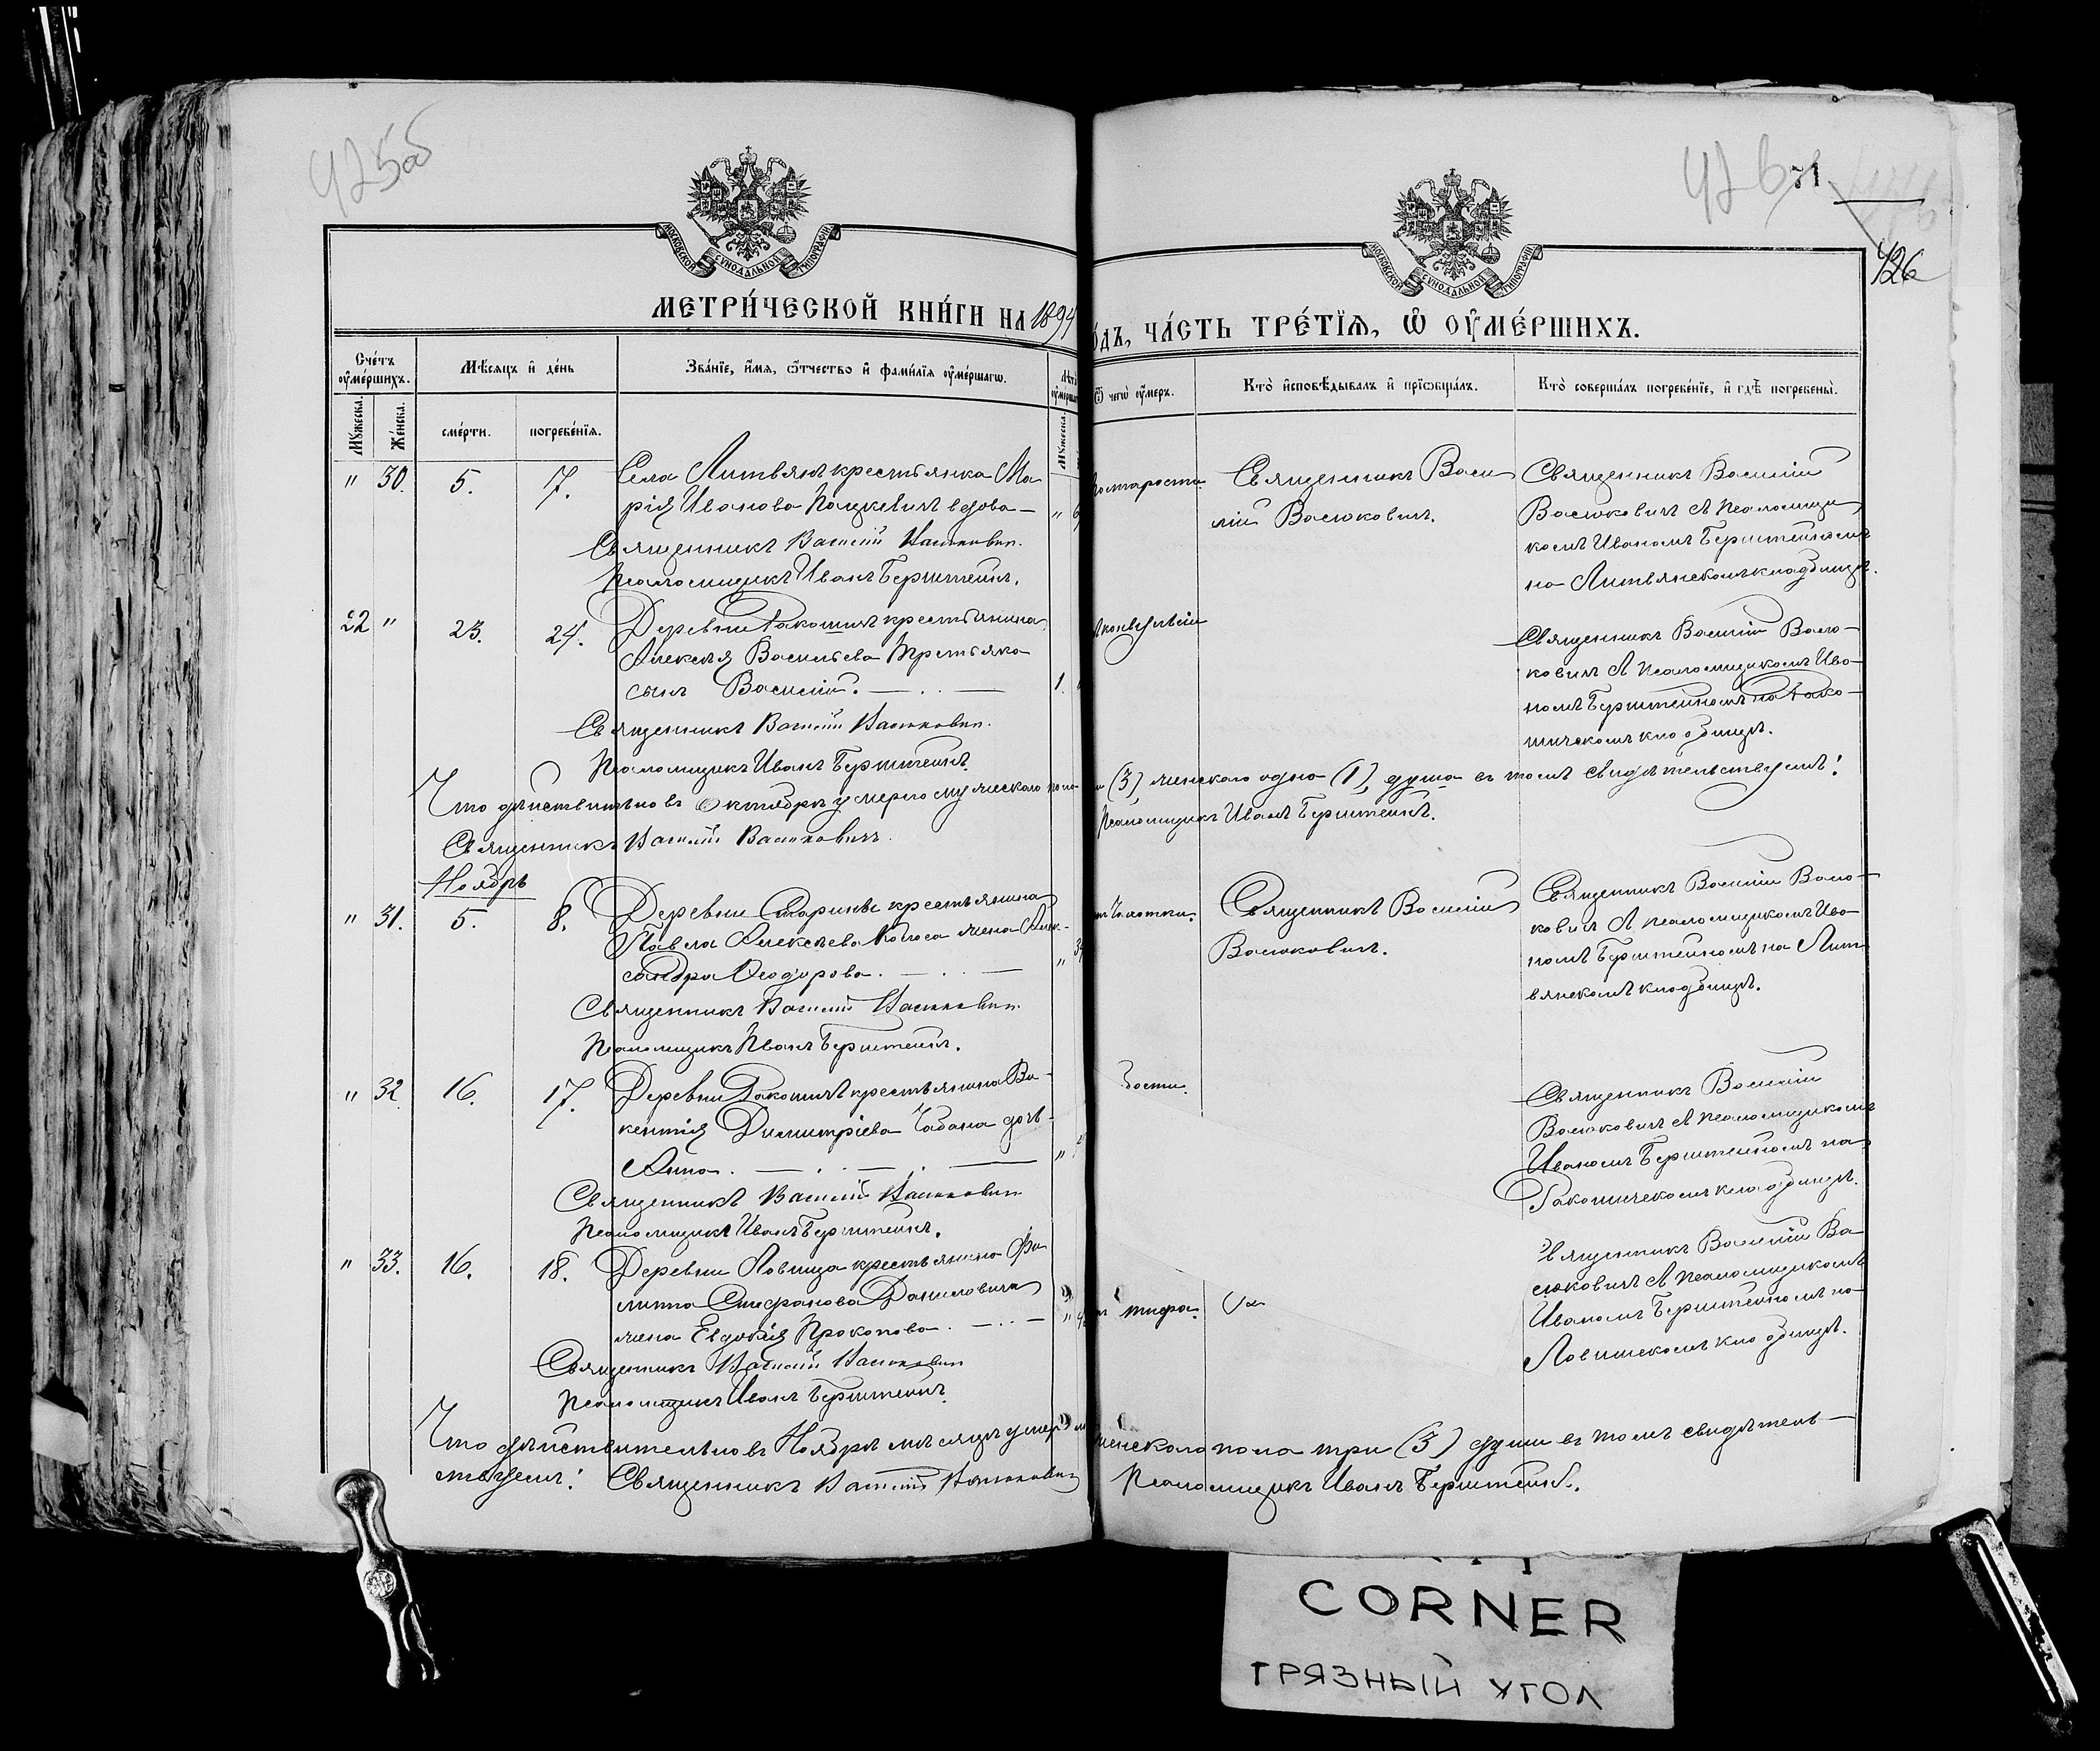 425об
426
71
426
МОСКОВСКОЙ СѴНОДАЛЬНОЙ ТИПОГРАФІИ
МОСКОВСКОЙ СѴНОДАЛЬНОЙ ТИПОГРАФІИ
МЕТРИ́ЧЕСКОЙ КНИ́ГИ НА 1894
ОДЪ, ЧА́СТЬ ТРЕ́ТІѦ, Ѿ ОУ҆МЕ́РШИХЪ.
Счетъ оумершихъ.
Мѣсяцъ и день
Званіе, имя, отчество и фамилія оумершаго.
Ѿ чего оумеръ.
Кто исповѣдывалъ и пріобщалъ.
Кто совершалъ погребеніе, и гдѣ погребены.
Мужеска.
Женска.
смерти.
погребенія.
Мужеска.
" 30. 5. 7. Села Литвянъ крестьянка Ма
рія Иванова Пацкевичъ вдова —
Священникъ Василій Васюковичъ.
Псаломщикъ Иванъ Берштейнъ.
старости. Священникъ Васи
лій Васюковичъ.
Священникъ Василій
Васюковичъ съ псаломщи
комъ Иваномъ Берштейномъ
на Литвянскомъ кладбищѣ.
22 " 23. 24. Деревни Ракошичъ крестьянина
Алексѣя Васильева Третьяка
сынъ Василій. 1.
Священникъ Василій Васюковичъ.
Псаломщикъ Иванъ Берштейнъ.
Священникъ Василій Васю-
ковичъ съ псаломщикомъ Ива-
номъ Берштейномъ на Рако-
шичскомъ кладбищѣ.
Что дѣйствительно въ Октябрѣ умерло мужескаго пола (3) женскаго одна (1) душа въ томъ свидѣтельствуемъ:
Священникъ Василій Васюковичъ. Псаломщикъ Иванъ Берштейнъ.
Ноябрь
" 31. 5. 8. Деревни Старинки крестьянина
Павла Алексѣева Колоса жена Алек-
сандра Ѳеодорова.
Священникъ Василій Васюковичъ.
Псаломщикъ Иванъ Берштейнъ.
Чахотки. Священникъ Василій
Васюковичъ.
Священникъ Василій Васю-
ковичъ съ псаломщикомъ Ива-
номъ Берштейномъ на Лит-
вянскомъ кладбищѣ.
" 32. 16. 17. Деревни Ракошичъ крестьянина Ви-
кентія Димитріева Чабана дочь
Анна.
Священникъ Василій Васюковичъ
Псаломщикъ Иванъ Берштейнъ.
Священникъ Василій
Васюковичъ съ псаломщикомъ
Иваномъ Берштейномъ на
Ракошичскомъ кладбищѣ.
" 33. 16. 18. Деревни Ловища крестьянина Фи
липпа Стефанова Даниловича
жена Евдокія Прокопова.
Священникъ Василій Васюковичъ
Псаломщикъ Иванъ Берштейнъ.
тифа.
Священникъ Василій Ва
сюковичъ съ псаломщикомъ
Иваномъ Берштейномъ на
Ловишскомъ кладбищѣ.
Что дѣйствительно въ Ноябрѣ мѣсяцѣ умер женскаго пола три (3) души въ томъ свидѣтель-
ствуемъ: Священникъ Василій Васюковичъ Псаломщикъ Иванъ Берштейнъ.
CORNER
ГРЯЗНЫЙ УГОЛ